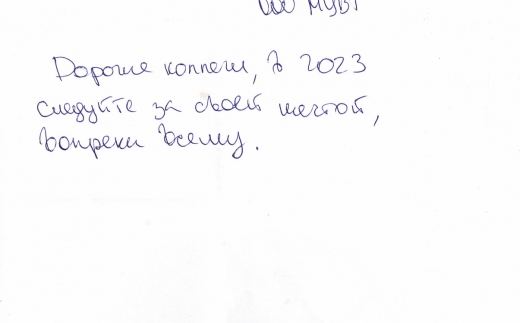 ООО МУВГ
Дорогие коллеги, в 2023
следуйте за своей мечтой,
вопреки всему.